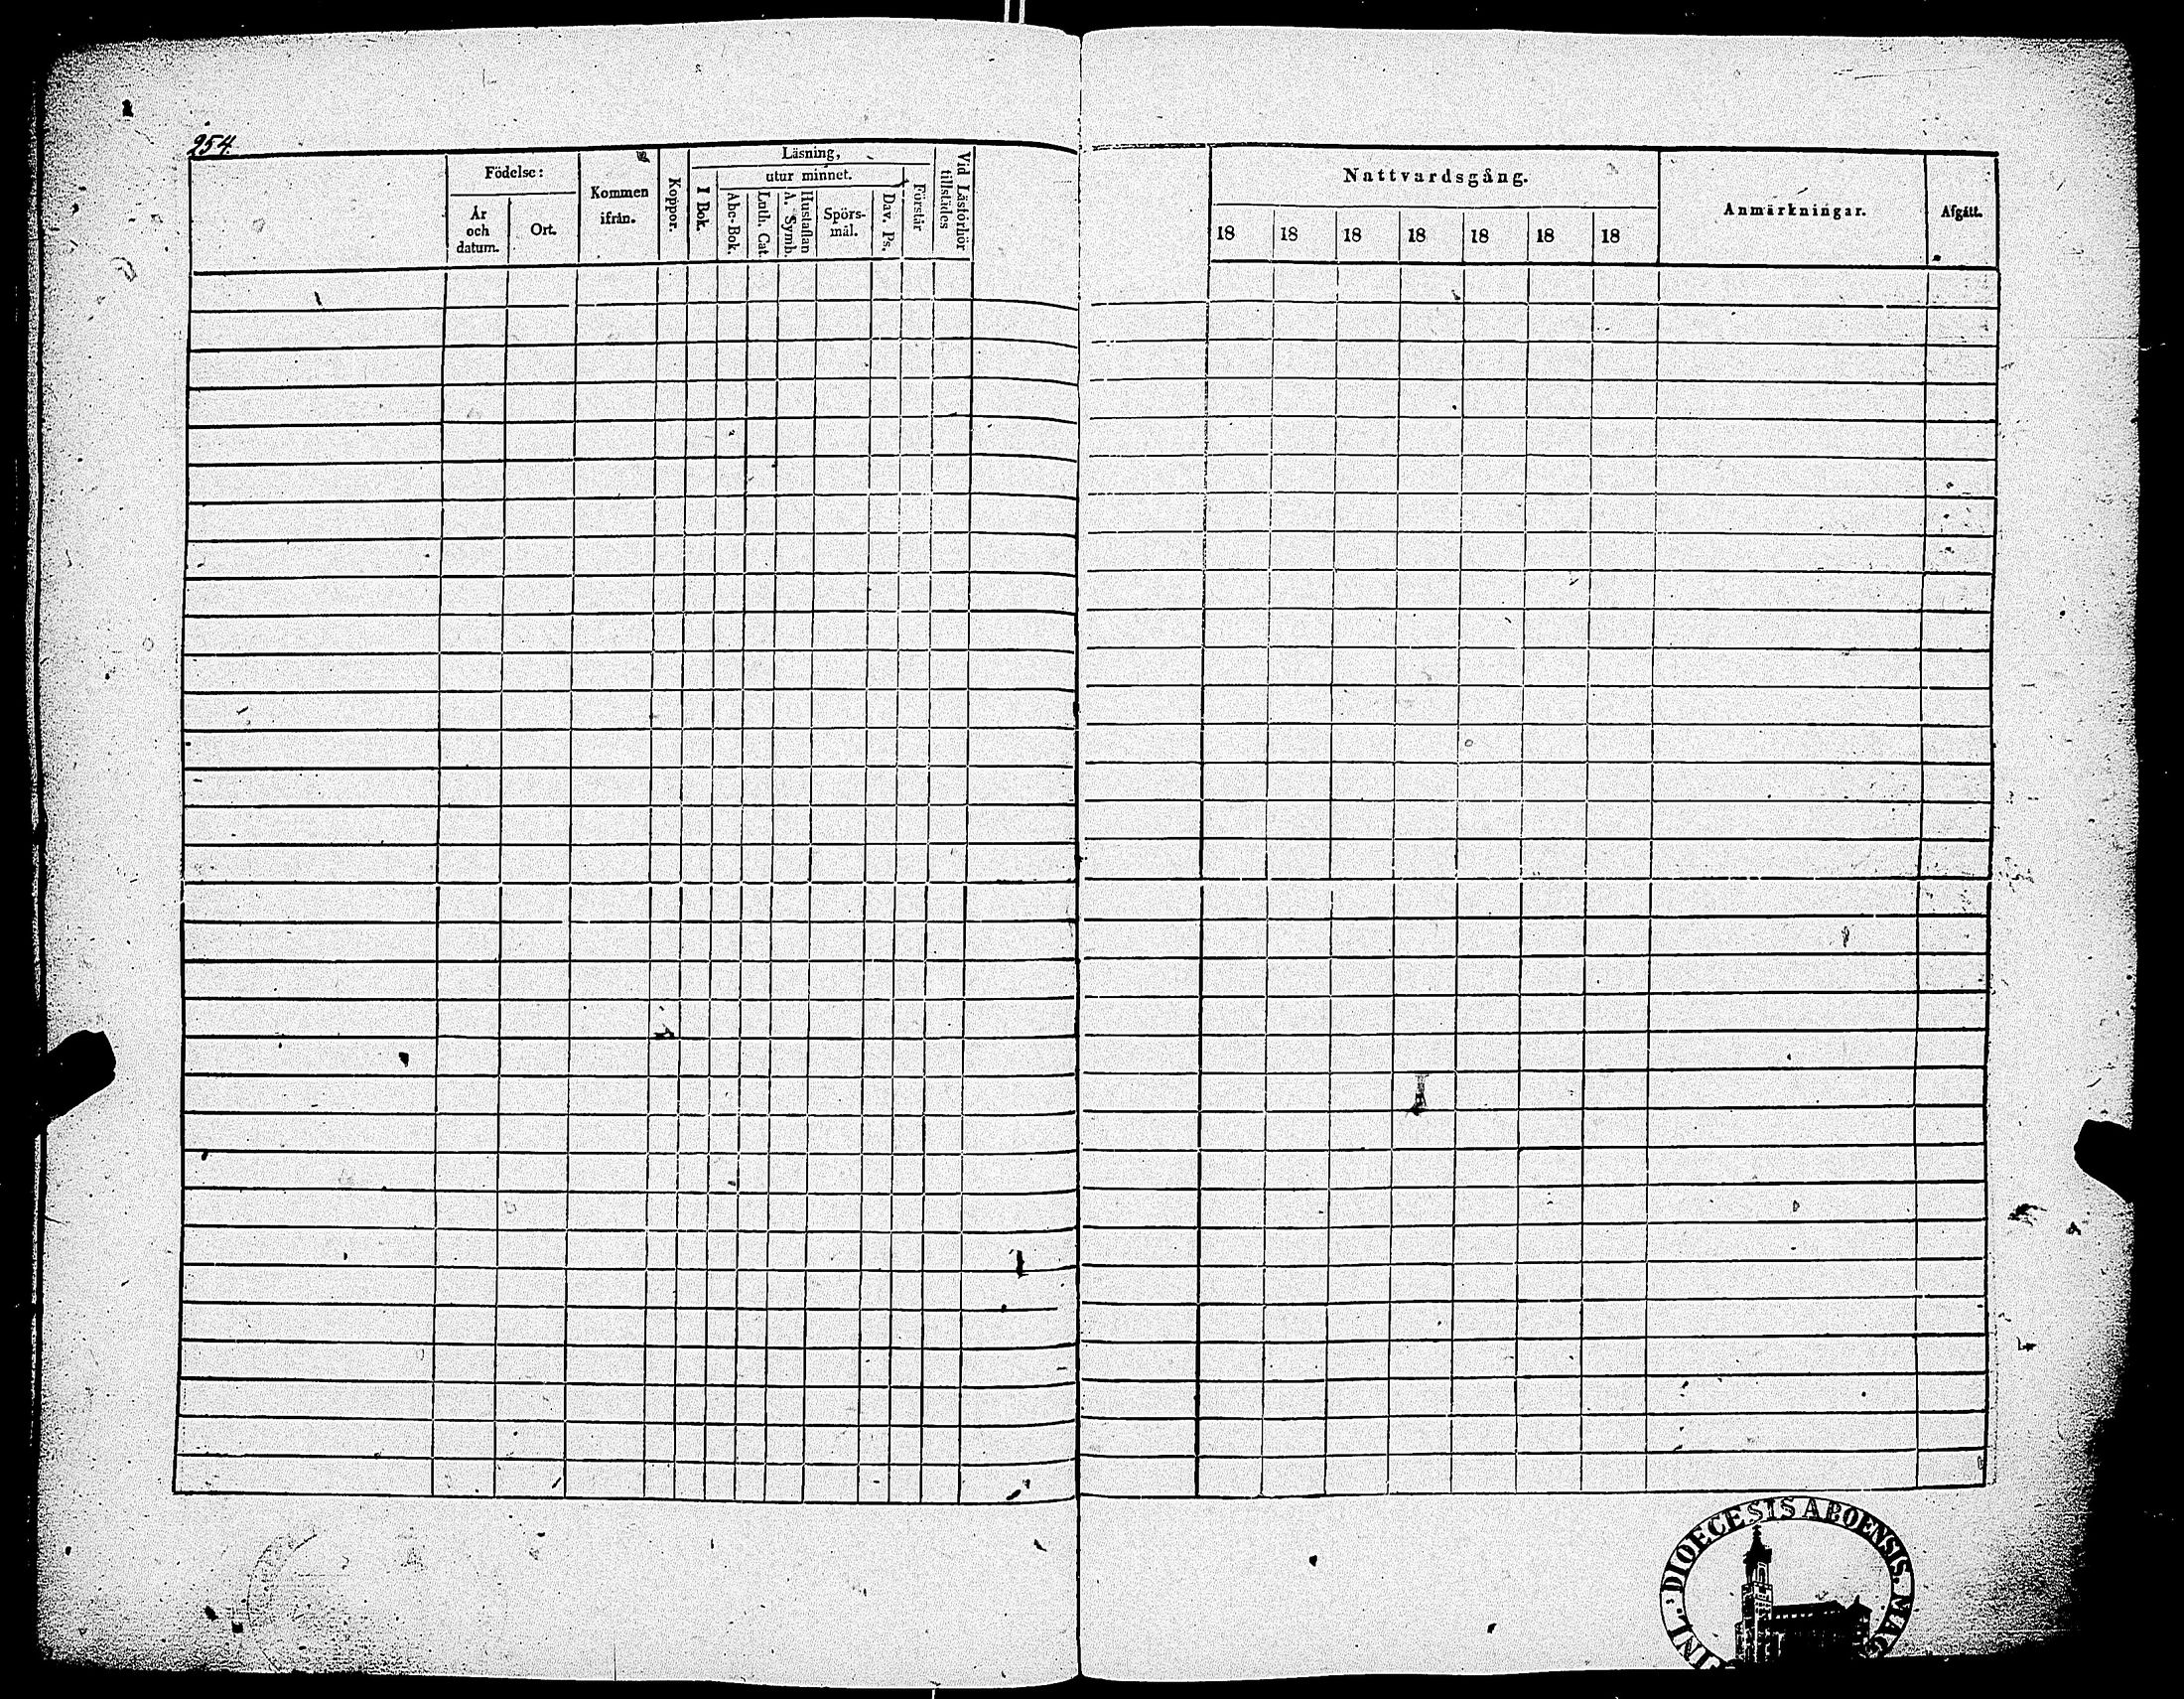 254.
Födelse:
År
och
datum.
Ort.
Kommen
ifrån.
Koppor.
Läsning,
I Bok.
utur minnet.
Abc-Bok.
Luth. Cat.
Hustaflan
A. Symb.
Spörs-
mål.
Dav. Ps.
Förstår
Vid Läsförhör
tillstädes
Nattvardsgång.
18 18 18 18 18 18 18
Anmärkningar.
Afgått.
DIOECESIS ABOENSIS. MAG